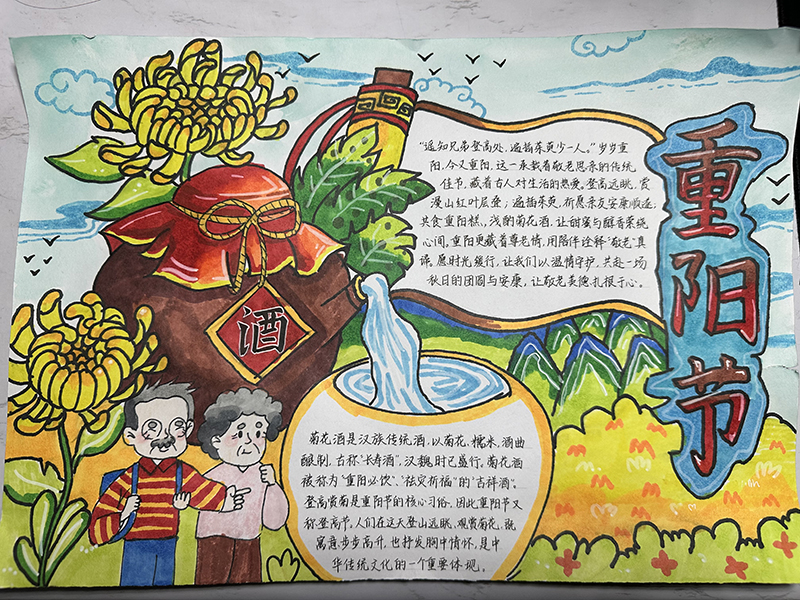 重阳节
"遥知兄弟登高处,遍插茱萸少一人。"岁岁重
阳,今又重阳,这一承载着敬老思亲的传统
佳节,藏着古人对生活的热爱,登高远眺,赏
漫山红叶层叠;遍插茱萸,祈愿亲友安康顺遂;
共食重阳糕,浅酌菊花酒,让甜蜜与醇香萦绕
心间,重阳更藏着尊老情,用陪伴诠释"敬老"真
谛,愿时光缓行,让我们以温情守护,共赴一场
秋日的团圆与安康,让敬老美德扎根于心。
酒
菊花酒是汉族传统酒,以菊花,糯米,酒曲
酿制,古称"长寿酒",汉魏时已盛行,菊花酒
被称为"重阳必饮"、"祛灾祈福"的"吉祥酒"。
登高赏菊是重阳节的核心习俗,因此重阳节又
称登高节,人们在这天登山远眺,观赏菊花,既
寓意步步高升,也抒发胸中情怀,是中
华传统文化的一个重要体现。